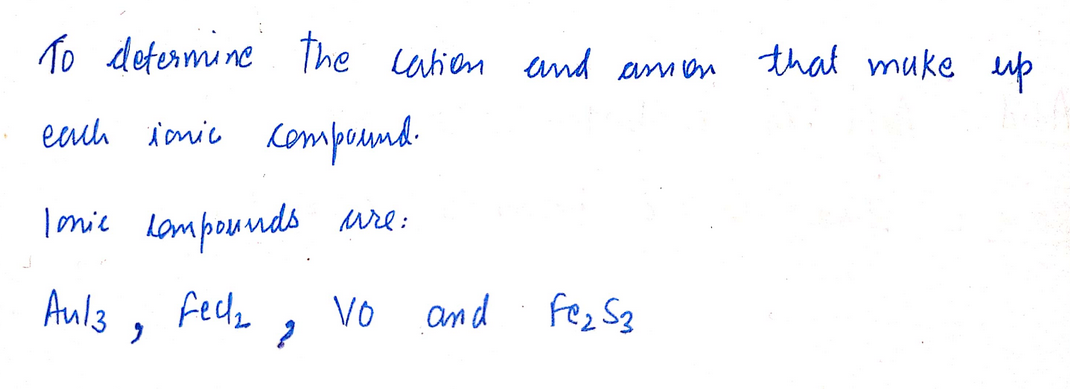 To determine The cation and anion that make up
each ionic compound.
Ionic compounds are:
AuI3, FeCl2, VO and Fe2S3